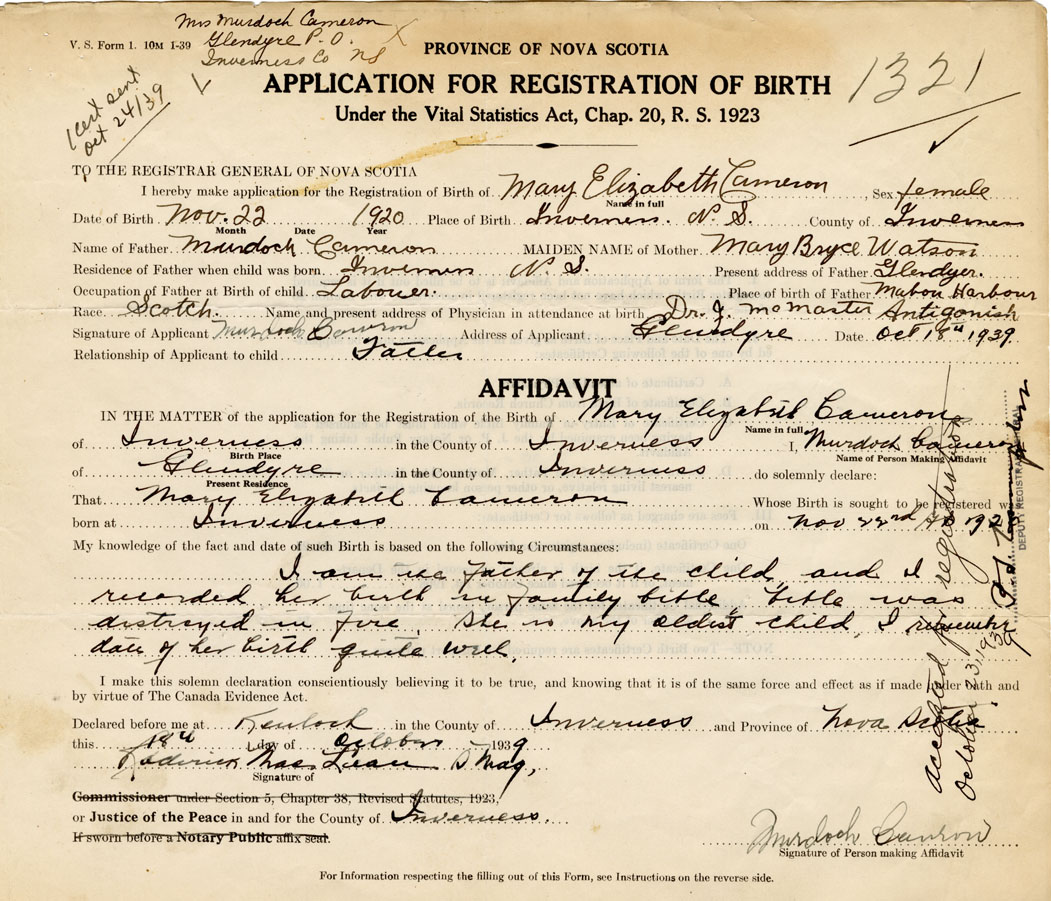 Mrs Murdoch Cameron
V. S. Form 1. 10M 1-39 Glendyre P. O.
Inverness Co NS
PROVINCE OF NOVA SCOTIA
1321
APPLICATION FOR REGISTRATION OF BIRTH
1 cert sent
oct 24/39
Under the Vital Statistics Act, Chap. 20, R. S. 1923
TO THE REGISTRAR GENERAL OF NOVA SCOTIA
I hereby make application for the Registration of Birth of Mary Elizabeth Cameron, Sex female
Name in full
Date of Birth Nov. 22 1920 Place of Birth Inverness. N. S. County of Inverness
Month Date Year
Name of Father Murdoch Cameron MAIDEN NAME of Mother Mary Bryce Watson
Residence of Father when child was born Inverness N. S. Present address of Father Glendyer.
Occupation of Father at Birth of child Labouer. Place of birth of Father Mabou Harbour
Race. Scotch. Name and present address of Physician in attendance at birth Dr. J. McMaster Antigonish
Signature of Applicant Murdoch Cameron Address of Applicant Glendyre Date Oct 18th 1939
Relationship of Applicant to child Father
AFFIDAVIT
IN THE MATTER of the application for the Registration of the Birth of Mary Elizabeth Cameron
Name in full
of Inverness in the County of Inverness I, Murdoch Cameron
Birth Place Name of Person Making Affidavit
of Glendyre in the County of Inverness do solemnly declare:
Present Residence
That Mary Elizabeth Cameron Whose Birth is sought to be registered w
born at Inverness on Nov 22nd 192
My knowledge of the fact and date of such Birth is based on the following Circumstances:
I am the Father of the child, and I
recorded her birth in family bible, bible was
distroyed in fire. She is my oldest child, I remember
date of her birth quite well.
I make this solemn declaration conscientiously believing it to be true, and knowing that it is of the same force and effect as if made under oath and
by virtue of The Canada Evidence Act.
Declared before me at Kenloch in the County of Inverness and Province of Nova Scotia
this 18th day of October 1939
Roderick MacLean S Mag,
Signature of
Commissioner under Section 5, Chapter 38, Revised Statutes, 1923,
or Justice of the Peace in and for the County of Inverness.
If sworn before a Notary Public affix seal.
Murdoch Camron
Signature of Person making Affidavit
For Information respecting the filling out of this Form, see Instructions on the reverse side.
accepted for registration
October 23, 1939
DEPUTY REGISTRAR GENERAL